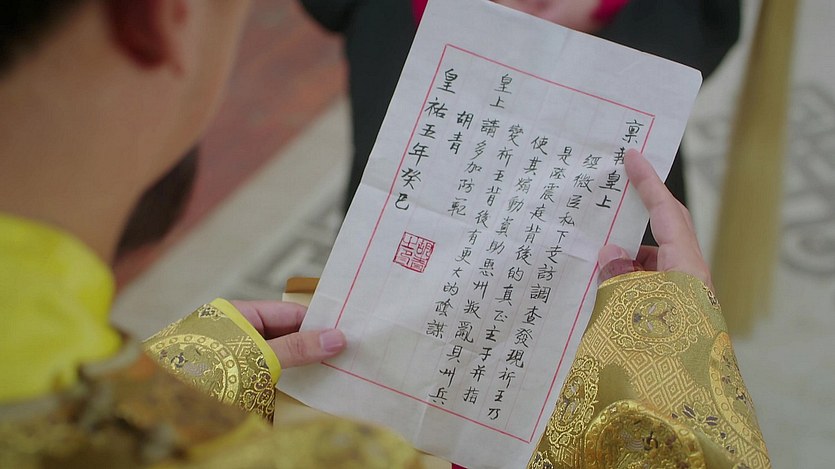 稟報皇上
經微臣私下走訪調查發現祈王乃
是陸震庭背後的真正主子并指
使其煽動冀助恩州叛亂貝州兵
變祈王背後有更大的陰謀
皇上請多加防範
胡青
皇祐五年癸巳